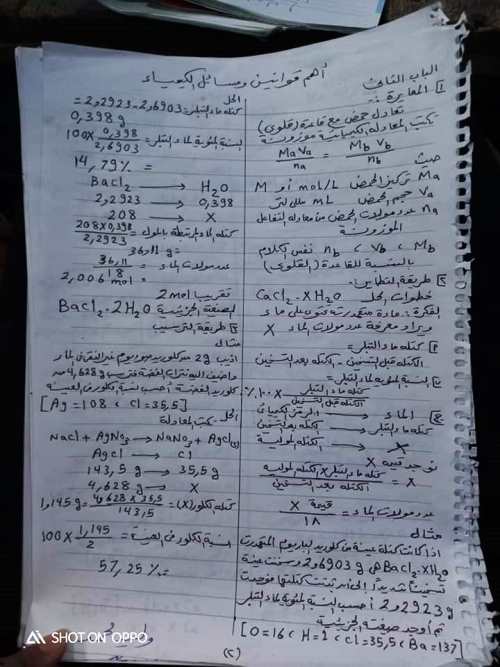 أهم قوانين ومسائل الكيمياء
الباب الثاني
1 المعايرة :-
تعادل حمض مع قاعدة (قلوي)
نكتب المعادلة الكيميائية موزونة
MaVa / na = Mb Vb / nb
حيث
Ma تركيز الحمض mol/L أو M
Va حجم الحمض mL مللى لتر
na عدد مولات الحمض من معادلة التفاعل
الموزونة
Mb ، Vb ، nb نفس الكلام
بالنسبة للقاعدة (القلوى)
2 طريقة التطاير :-
خطوات الحل CaCl2.XH2O
الفكرة : مادة متهدرتة تحتوى على ماء
ويراد معرفة عدد مولات الماء X
1 كتلة ماء التبلر =
الكتلة قبل التسخين - الكتلة بعد التسخين
2 النسبة المئوية لماء التبلر =
كتلة ماء التبلر / الكتلة قبل التسخين × 100%
3 الماء → المركب الكيميائى
كتلة ماء التبلر → الكتلة بعد التسخين
X → الكتلة المولية
نوجد قيمة X
X = كتلة ماء التبلر × الكتلة المولية / الكتلة بعد التسخين
عدد مولات الماء = قيمة X / 18
مثال
اذا كانت كتلة عينة من كلوريد الباريوم المتهدرت
BaCl2.XH2O هى 2,6903 g وسخنت عينة
تسخيناً شديداً إلى أن ثبتت كتلتها فوجدت
2,2923 g أحسب النسبة المئوية لماء التبلر
ثم أوجد صيغته الجزيئية
[O=16 ، H=1 ، Cl=35,5 ، Ba=137]
الحل
كتلة ماء التبلر = 2,6903 - 2,2923 =
0,398 g
النسبة المئوية لماء التبلر = 0,398 / 2,6903 × 100
= 14,79%
BaCl2 → H2O
2,2923 → 0,398
208 → X
كتلة الماء المرتبطة بالمول = 208 × 0,398 / 2,2923
= 36,11 g
عدد مولات الماء = 36,11 / 18 =
2,006 mol
تقريبا 2 mol
الصيغة الجزيئية BaCl2.2H2O
3 طريقة الترسيب
مثال
اذيب 2g من كلوريد صوديوم غير النقى فى الماء
واضيف اليه نترات الفضة فترسب 4,628g من
كلوريد الفضة أحسب نسبة الكلور فى العينة
[Ag = 108 ، Cl = 35,5]
الحل
نكتب المعادلة
NaCl + AgNO3 → NaNO3 + AgCl(s)
AgCl → Cl
143,5 g → 35,5 g
4,628 g → X
كتلة الكلور (X) = 4,628 × 35,5 / 143,5 = 1,145 g
نسبة الكلور فى العينة = 1,145 / 2 × 100
= 57,25%
(2)
SHOT ON OPPO